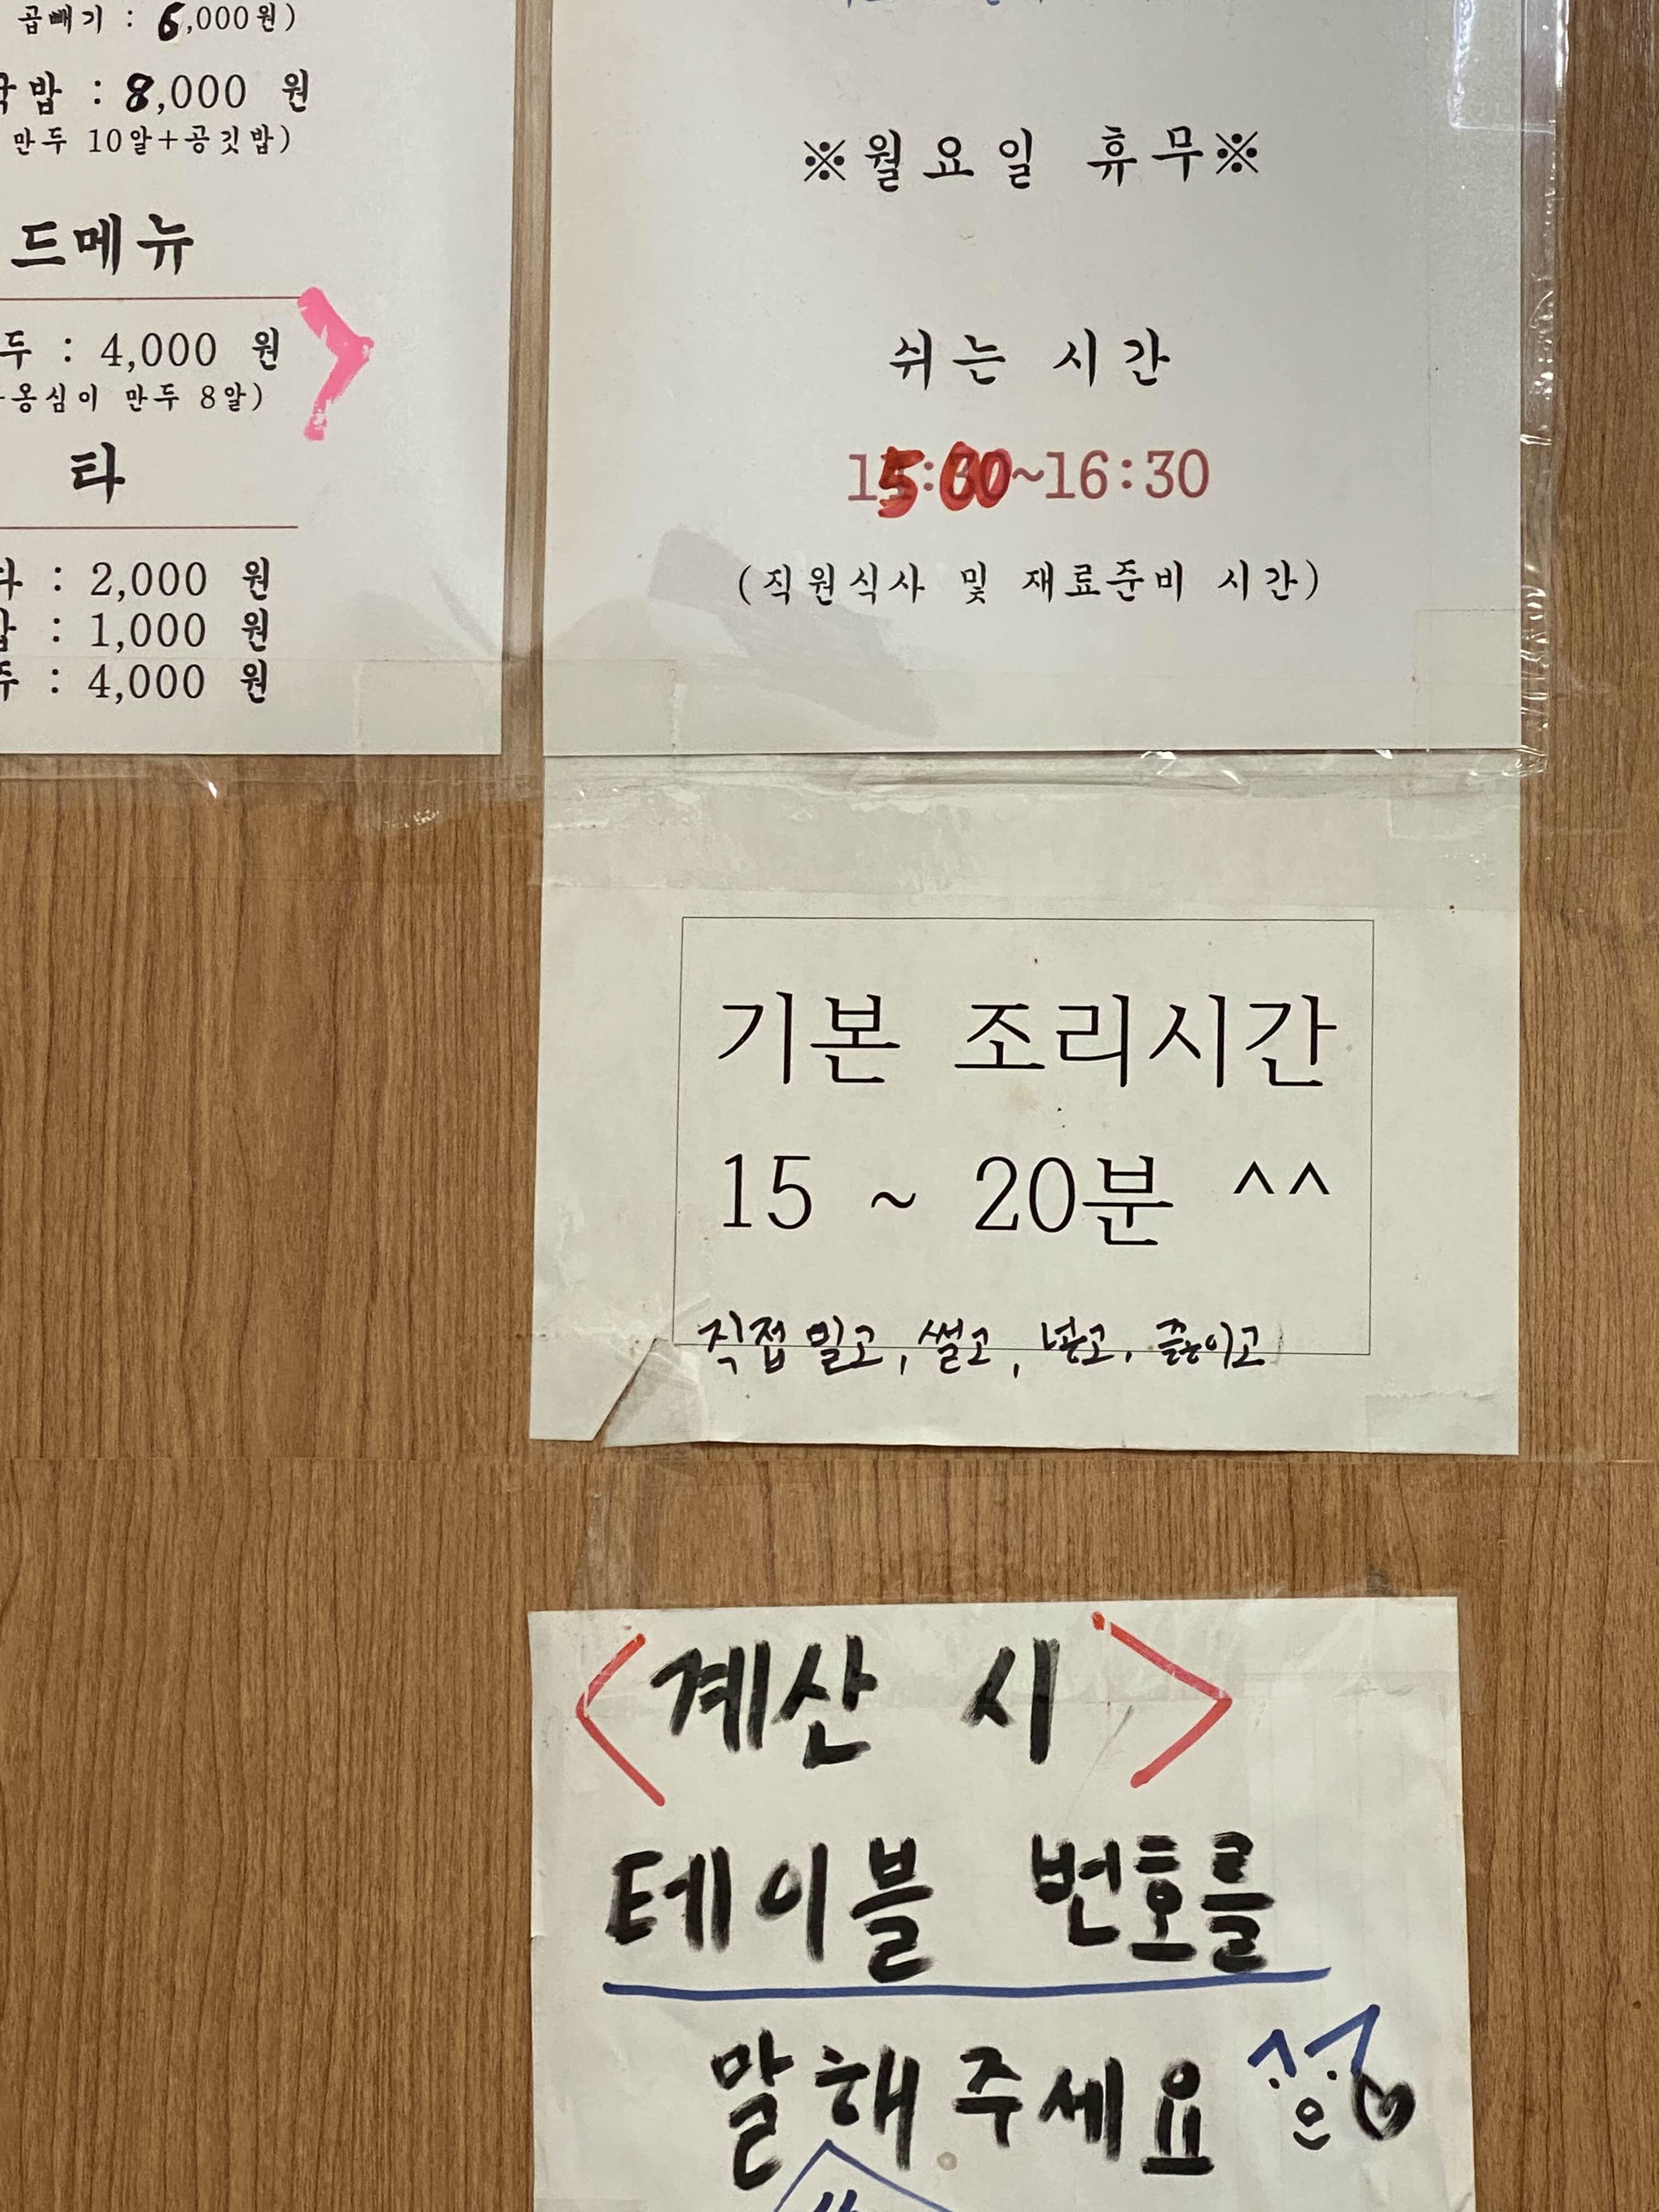 곱빼기 : 6,000원)
국밥 : 8,000 원
만두 10알+공깃밥)
드메뉴
두 : 4,000 원
옹심이 만두 8알)
타
: 2,000 원
: 1,000 원
주 : 4,000 원
※월요일 휴무※
쉬는 시간
15:00~16:30
(직원식사 및 재료준비 시간)
기본 조리시간
15 ~ 20분 ^^
직접 밀고, 썰고, 넣고, 끓이고
<계산 시>
테이블 번호를
말해주세요